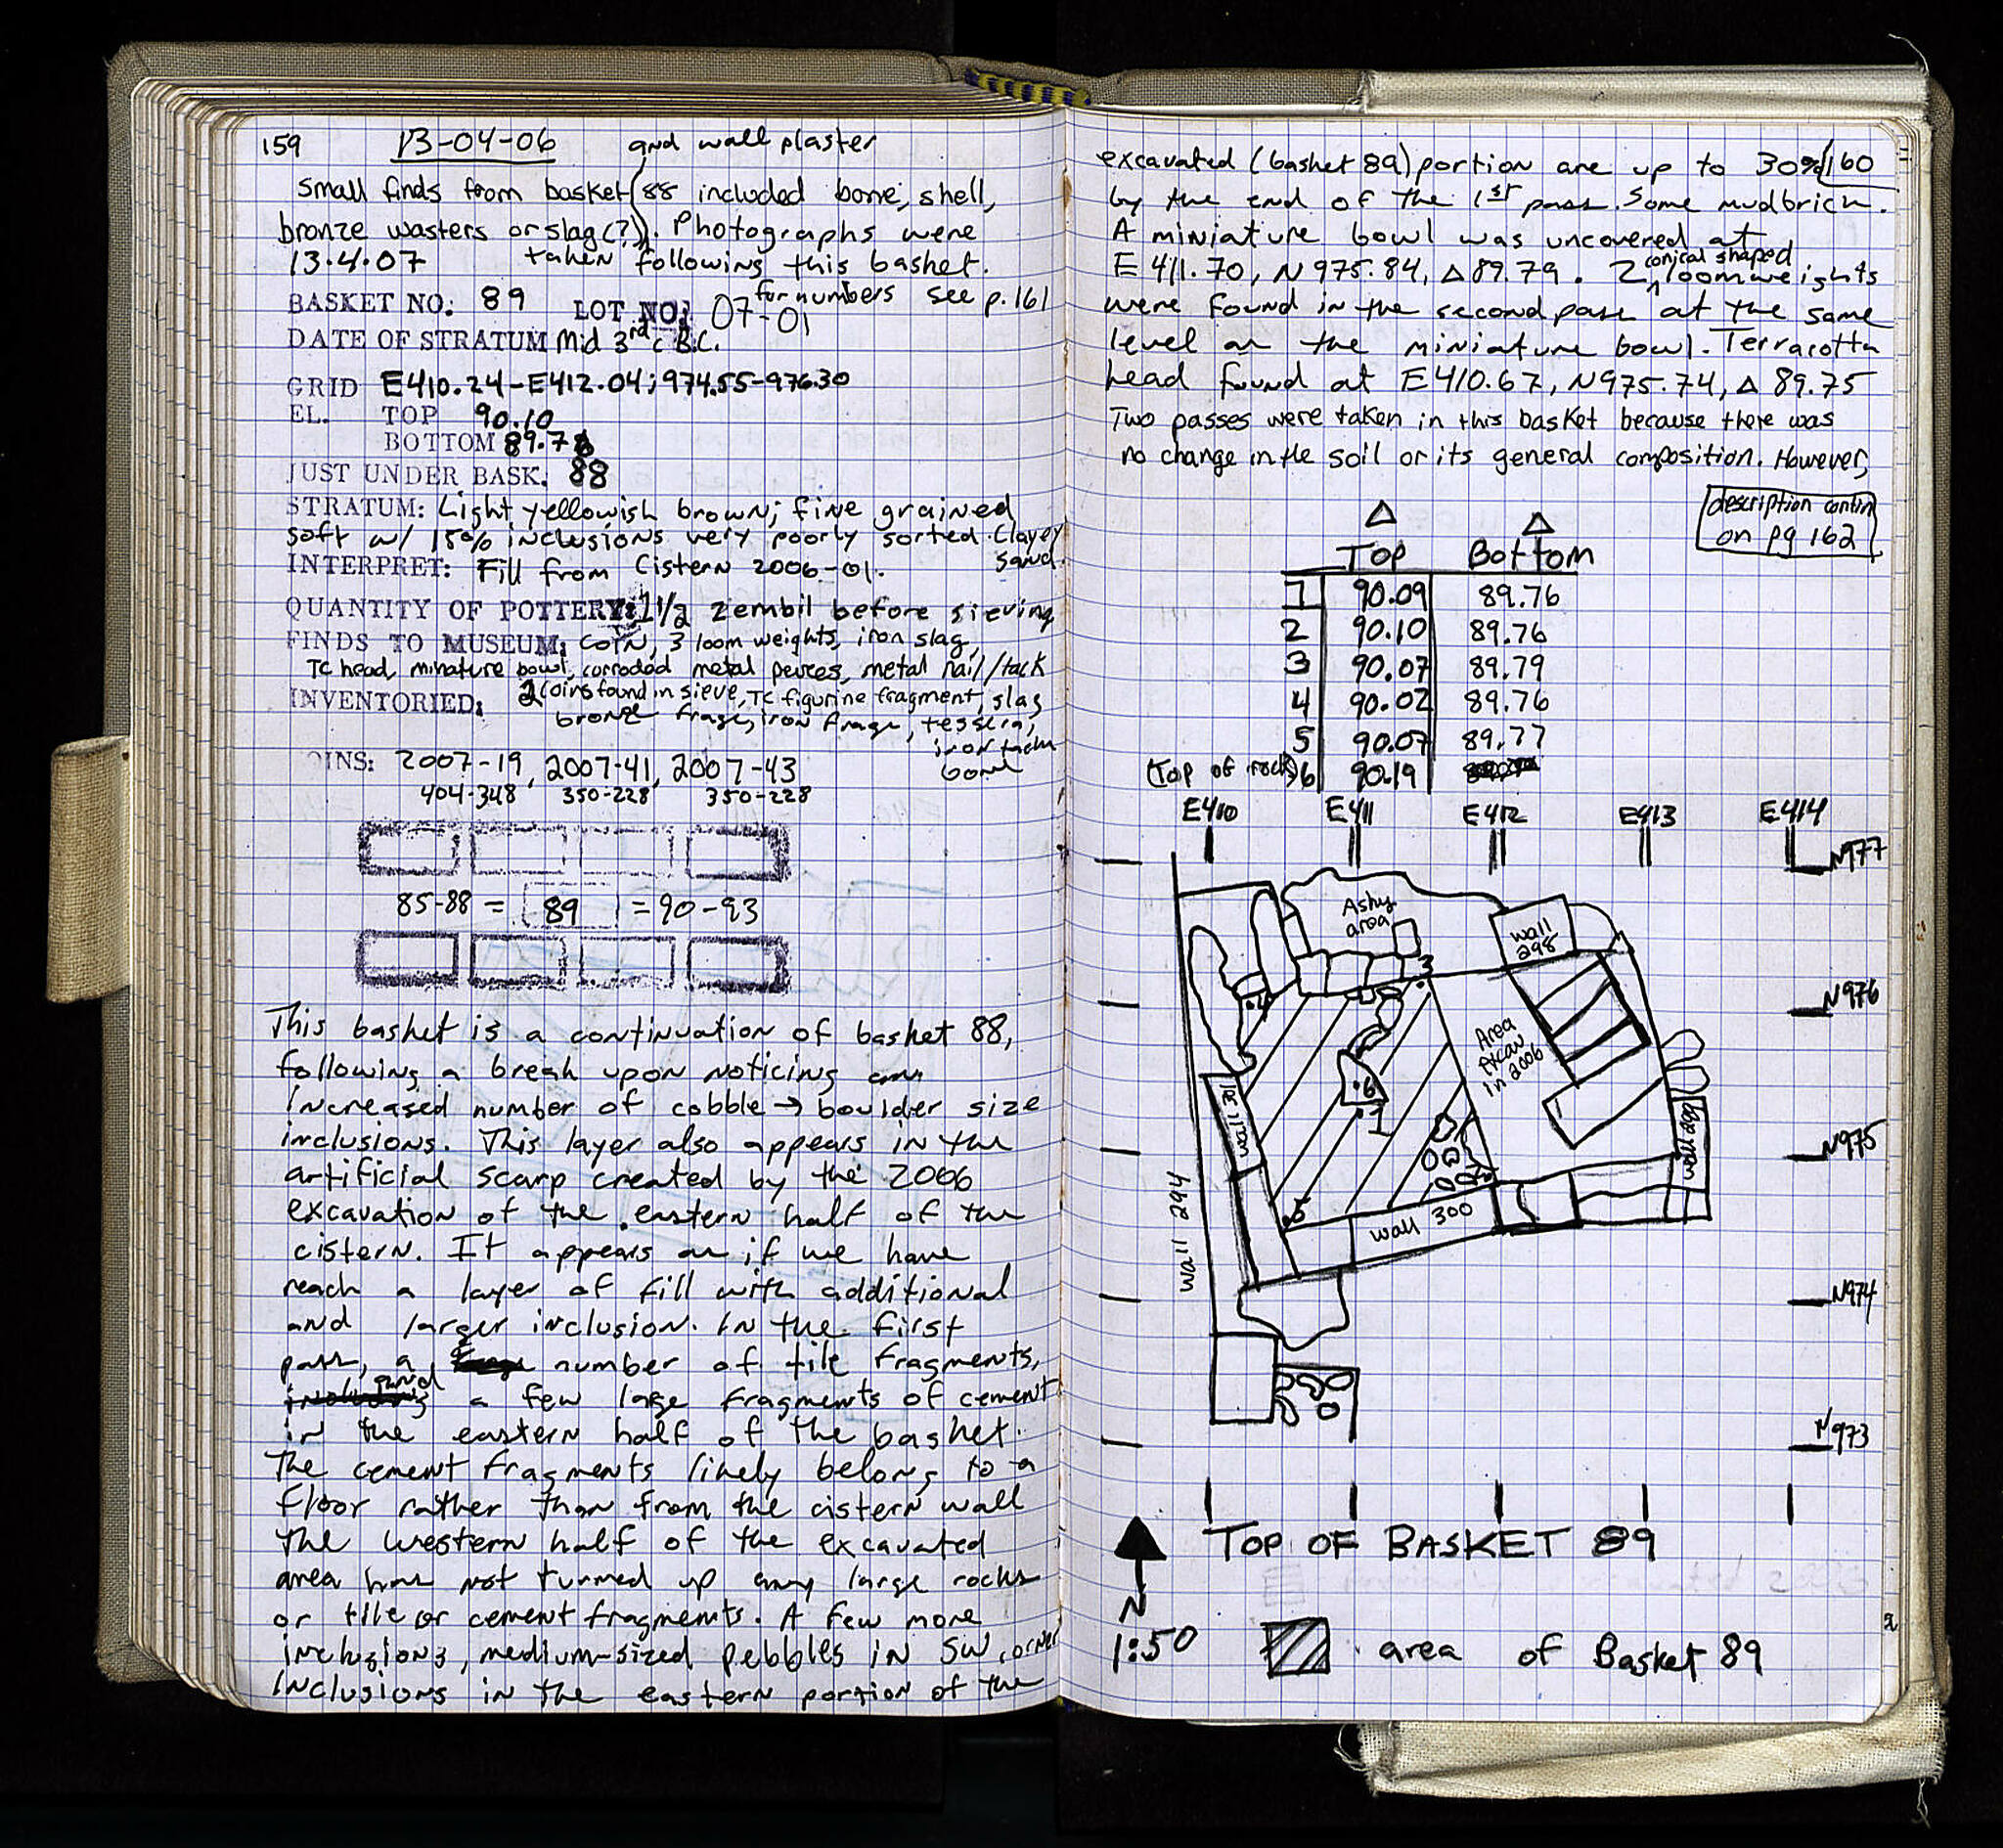 159 13-04-06 and wall plaster
small finds from basket 88 included bone, shell,
bronze wasters or slag(?). Photographs were
13.4.07 taken following this basket.
BASKET NO: 89 LOT NO: 07-01 for numbers see p. 161
DATE OF STRATUM Mid 3rd c B.C.
GRID E410.24-E412.04; 974.55-976.30
EL. TOP 90.10
BOTTOM 89.76
JUST UNDER BASK: 88
STRATUM: Light yellowish brown; fine grained,
soft w/ 15% inclusions very poorly sorted. Clayey
sand.
INTERPRET: Fill from Cistern 2006-01.
QUANTITY OF POTTERY: 1 1/2 zembil before sieving
FINDS TO MUSEUM: coin, 3 loom weights, iron slag,
TC head, minature bowl, corroded metal peices, metal nail/tack
INVENTORIED: 2 coins found in sieve, TC figurine fragment, slag
bronze frags, iron frags, tessera,
iron tack
bowl
OINS: 2007-19, 2007-41, 2007-43
404-348 350-228 350-228
85-88 = 89 = 90-93
This basket is a continuation of basket 88,
following a break upon noticing an
increased number of cobble → boulder size
inclusions. This layer also appears in the
artificial scarp created by the 2006
excavation of the eastern half of the
cistern. It appears as if we have
reach a layer of fill with additional
and larger inclusion. In the first
pass, a number of tile fragments,
and a few large fragments of cement
in the eastern half of the basket.
The cement fragments likely belong to a
floor rather than from the cistern wall
The western half of the excavated
area has not turned up any large rocks
or tile or cement fragments. A few more
inclusions, medium-sized pebbles in SW corner
Inclusions in the eastern portion of the
excavated (basket 89) portion are up to 30% 160
by the end of the 1st pass. Some mudbrick.
A miniature bowl was uncovered at
E 411.70, N 975.84, Δ 89.79. 2 conical shaped loomweights
were found in the second pass at the same
level as the miniature bowl. Terracotta
head found at E410.67, N975.74, Δ 89.75
Two passes were taken in this basket because there was
no change in the soil or its general composition. However,
description contin
on pg 162
Δ Δ
Top Bottom
1 90.09 89.76
2 90.10 89.76
3 90.07 89.79
4 90.02 89.76
5 90.07 89.77
(Top of rock) 6 90.19
E410 E411 E412 E413 E414
N977
Ashy
area
wall
298
3
.4
N976
Area
excav
in 2006
.6
.1
wall 301
wall 299
N975
2
wall 294
.5
wall 300
N974
N973
TOP OF BASKET 89
N
1:50 area of Basket 89
2